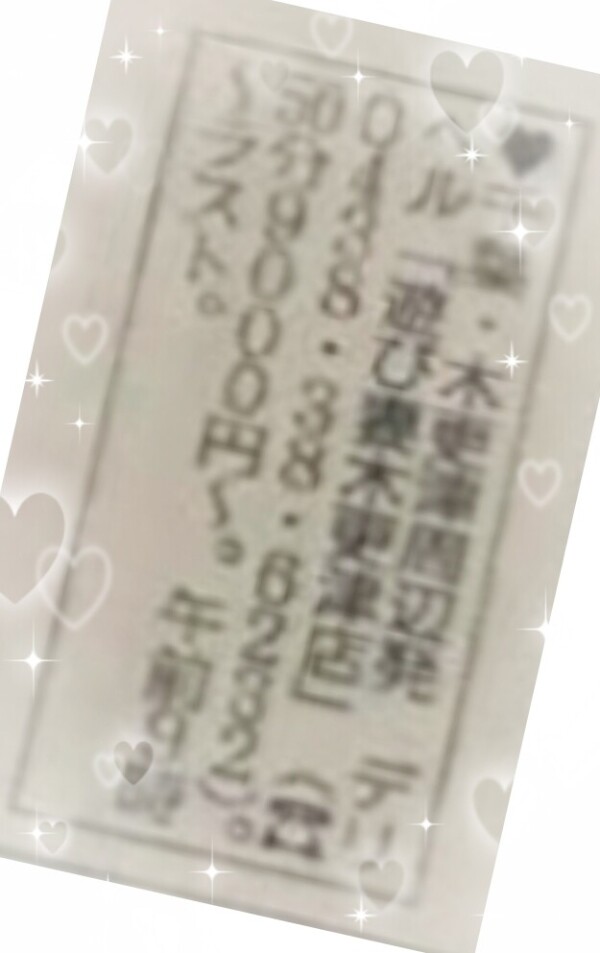 ・木更津周辺発 デリ
ヘル「遊び 木更津店」(電
0438・38・6282)。
50分9000円〜。年
〜ラスト。